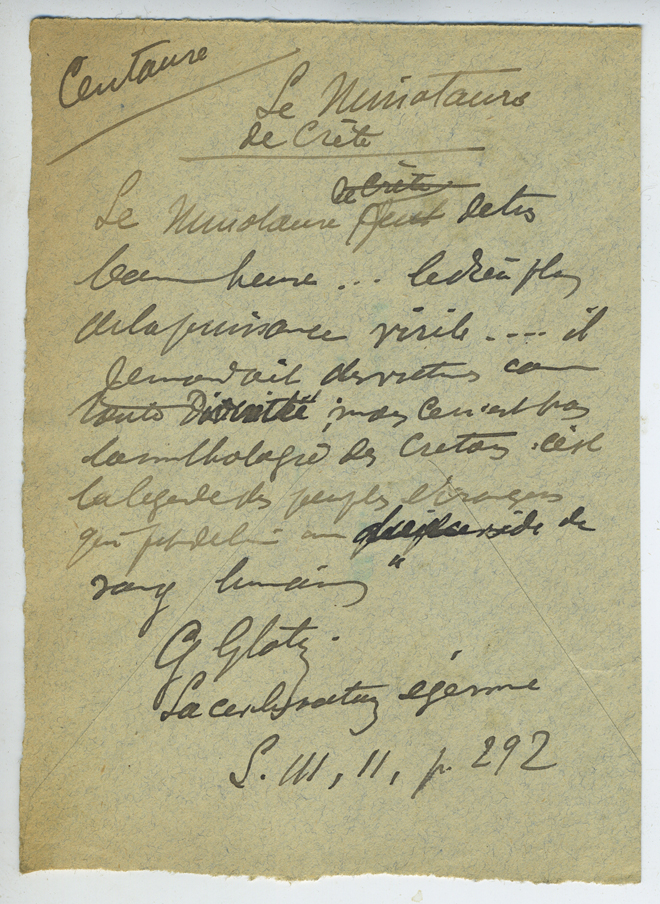 Centaure
Le Minotaure
de Crète
de Crète
Le Minotaure fut de très
bonne heure ... le dieu
de la puissance virile .... il
demandait des victimes comme
toute Divinité ; mais ce n'est pas
la mythologie des Crétois . c'est
la légende des peuples étrangers
qui fit de lui un de
sang humain "
G Glotz.
La civilisation égéenne
L. III, II, p. 292